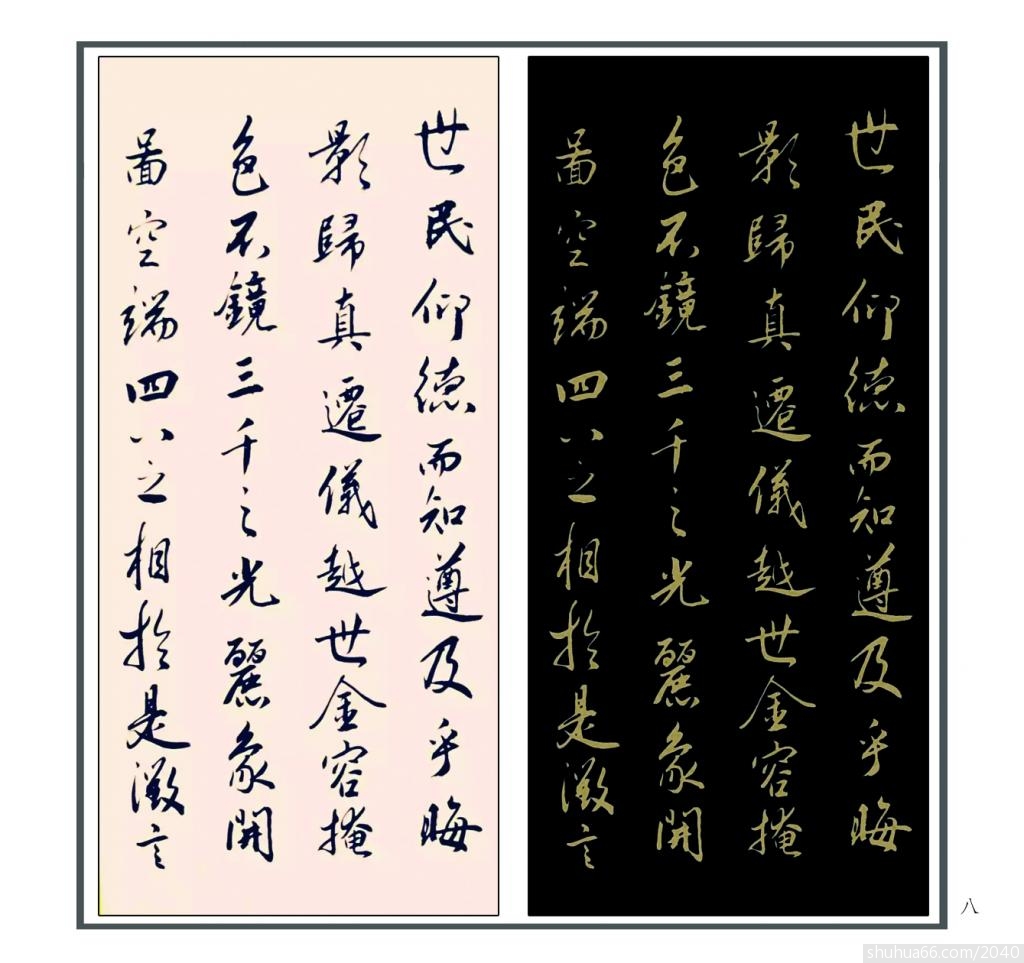 世民仰德而知遵及乎晦
影歸真遷儀越世金容掩
色不鏡三千之光麗象開
啚空端四八之相於是微言
世民仰德而知遵及乎晦
影歸真遷儀越世金容掩
色不鏡三千之光麗象開
啚空端四八之相於是微言
八
shuhua66.com/2040